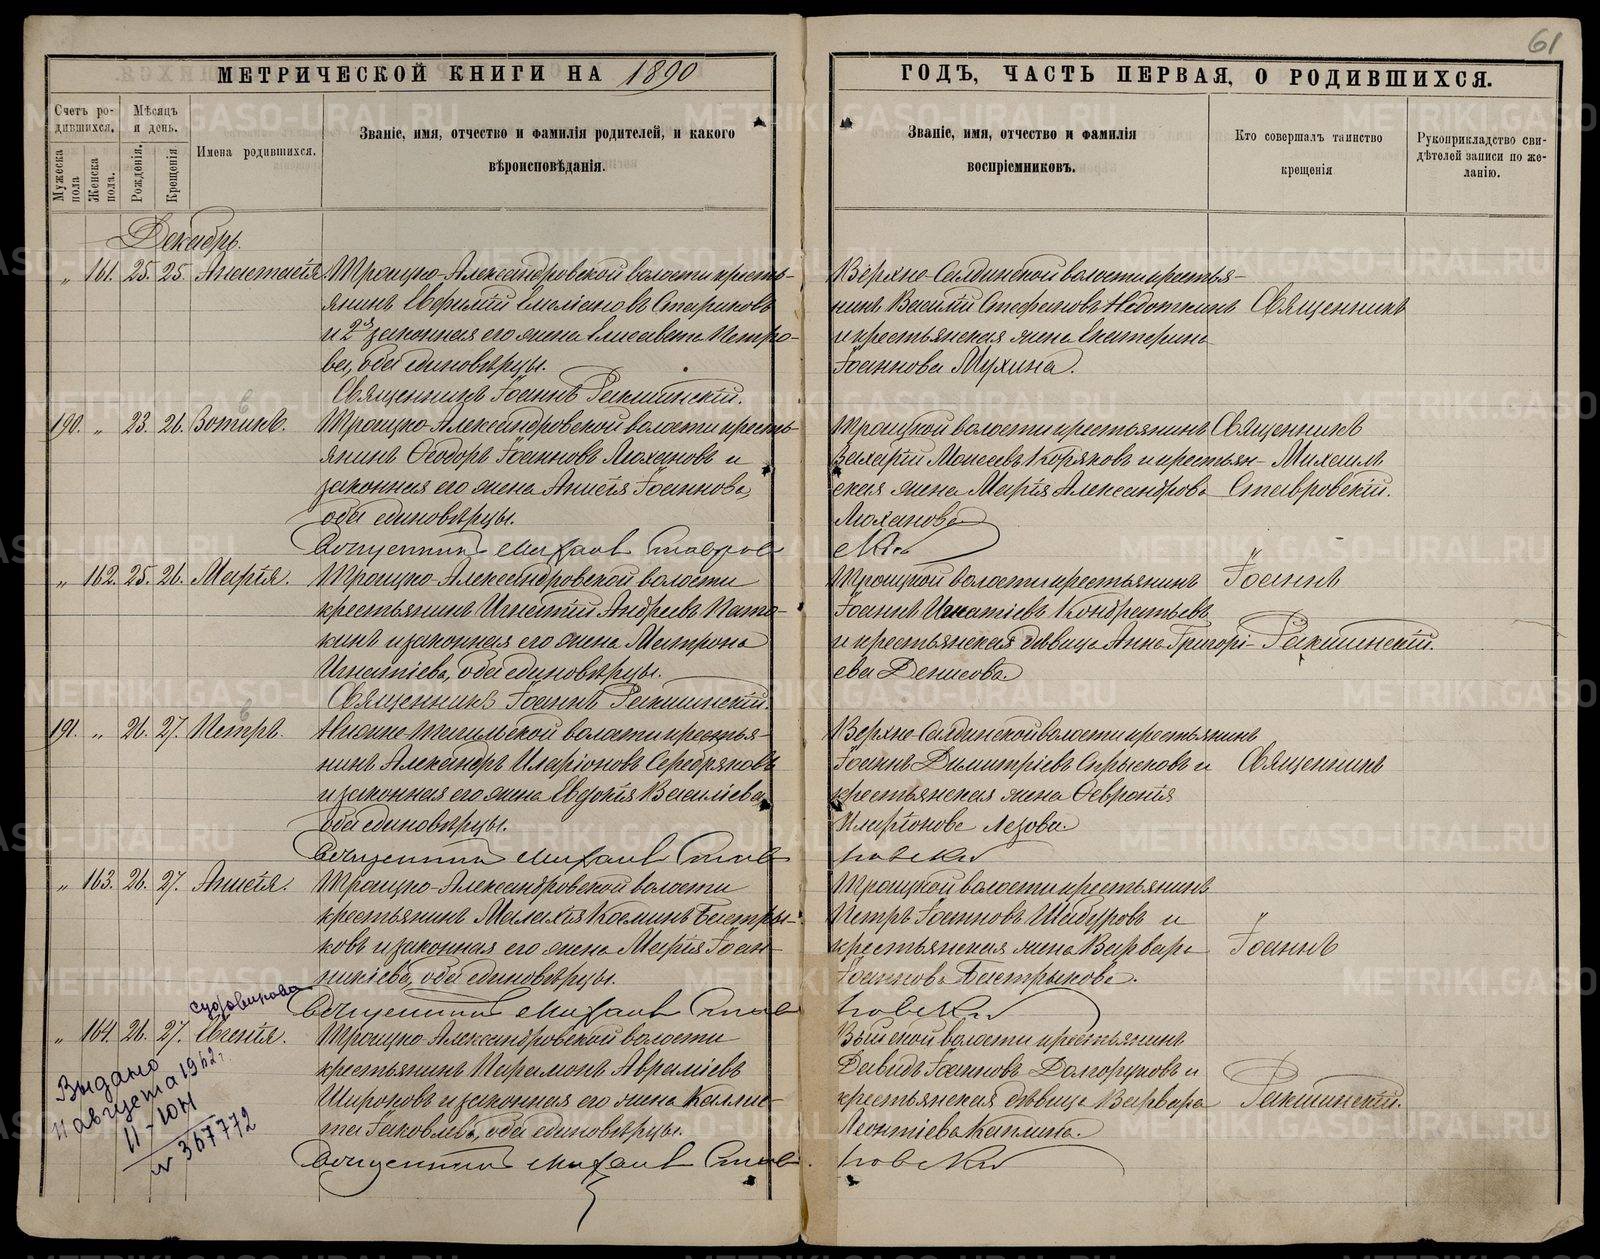 61
МЕТРИЧЕСКОЙ КНИГИ НА 1890 ГОДЪ, ЧАСТЬ ПЕРВАЯ, О РОДИВШИХСЯ.
Счетъ ро-
дившихся.
Мужеска пола
Женска пола.
Мѣсяцъ
и день.
Рожденія.
Крещенія
Имена родившихся.
Званіе, имя, отчество и фамилія родителей, и какого
вѣроисповѣданія.
Званіе, имя, отчество и фамилія
воспріемниковъ.
Кто совершалъ таинство
крещенія
Рукоприкладство сви-
дѣтелей записи по же-
ланію.
Декабрь.
„ 161. 25. 25. Анастасія Троицко-Александровской волости кресть-
янинъ Евфимій Емеліановъ Стариковъ
и 2я законная его жена Елисавета Петро-
ва, оба единовѣрцы.
Священникъ Іоаннъ Ракшинскій.
Верхне-Салдинской волости крестья-
нинъ Василій Стефановъ Недоткинъ
и крестьянская жена Екатерина
Іоаннова Мухина.
Священникъ
190. „ 23. 26. Зотикъ. Троицко-Александровской волости кресть-
янинъ Ѳеодоръ Іоанновъ Люхановъ и
законная его жена Анисія Іоаннова,
оба единовѣрцы.
Священникъ Михаилъ Ставров
Троицкой волости крестьянинъ
Захарій Моисеевъ Коряковъ и крестьян-
ская жена Марія Александрова
Люханова
Священникъ
Михаилъ
Ставровскій.
„ 162. 25. 26. Марія. Троицко-Александровской волости
крестьянинъ Игнатій Андреевъ Пато-
кинъ и законная его жена Матрона
Игнатіева, оба единовѣрцы.
Священникъ Іоаннъ Ракшинскій.
Троицкой волости крестьянинъ
Іоаннъ Игнатіевъ Кондратьевъ
и крестьянская дѣвица Анна Григорі-
ева Денисова.
Іоаннъ
Ракшинскій.
191. „ 26. 27. Петръ. Нижне-Тагильской волости крестья-
нинъ Александръ Иларіоновъ Серебряковъ
и законная его жена Евдокія Василіева,
оба единовѣрцы.
Священникъ Михаилъ Став
ровскій
Верхне-Салдинской волости крестьянинъ
Іоаннъ Димитріевъ Спрысковъ и
крестьянская жена Ѳеврония
Иларіонова Лезова.
Священникъ
„ 163. 26. 27. Анисія. Троицко-Александровской волости
крестьянинъ Малахія Косминъ Бастры-
ковъ и законная его жена Марія Іоан-
никіева, оба единовѣрцы.
Священникъ Михаилъ Став
ровскій
Троицкой волости крестьянинъ
Петръ Іоанновъ Шабуровъ и
крестьянская жена Варвара
Іоаннова Бастрыкова.
„
Іоаннъ
„ 164. 26. 27. Евгенія. Троицко-Александровской волости
крестьянинъ Парамонъ Авраміевъ
Широковъ и законная его жена Каллис-
та Іаковлева, оба единовѣрцы.
Священникъ Михаилъ Став
ровскій
Выйской волости крестьянинъ
Давидъ Іоанновъ Долгоруковъ и
крестьянская дѣвица Варвара
Леонтіева Каплина.
Ракшинскій.
Выдано
11 августа 1962 г.
II-ЮН
№ 367772
METRIKI.GASO-URAL.RU